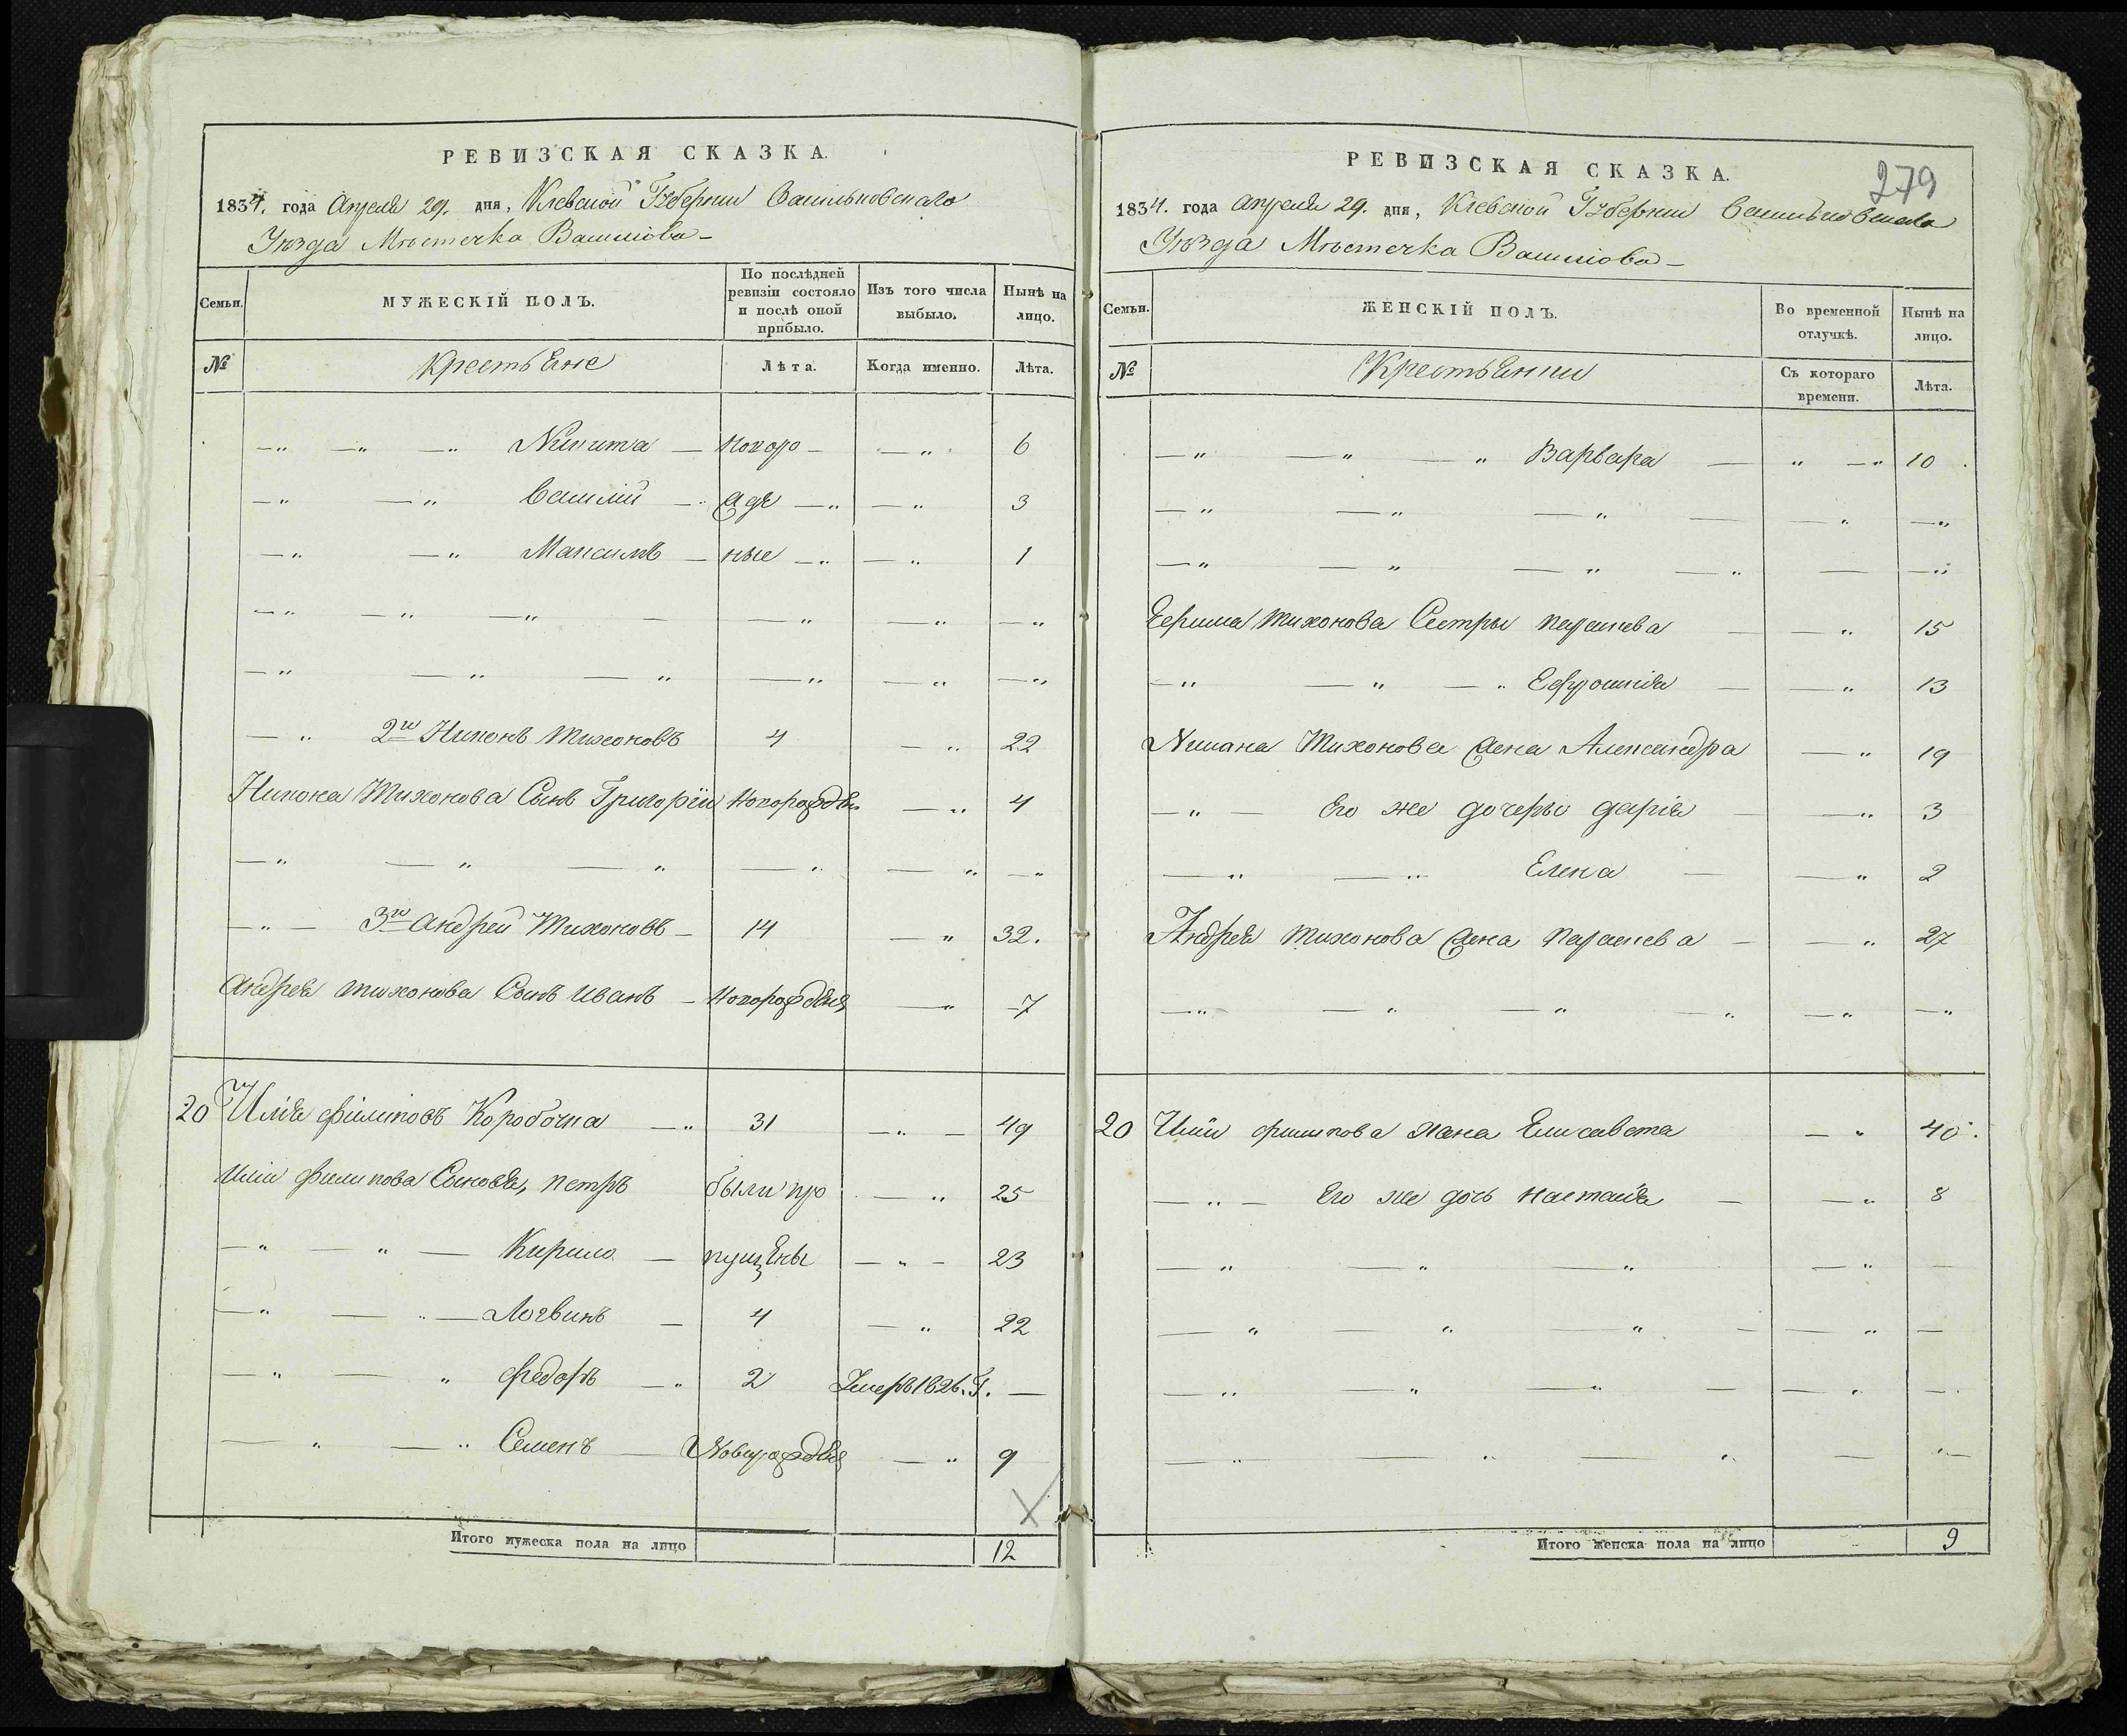 РЕВИЗСКАЯ СКАЗКА.
1834. года Апреля 29. дня, Кіевской Губерніи Васильковскаго
Уѣзда Мѣстечка
Семьи. МУЖЕСКІЙ ПОЛЪ. По послѣдней ревизіи состояло и послѣ оной прибыло. Изъ того числа выбыло. Нынѣ на лицо.
№ Крестьяне Лѣта. Когда именно. Лѣта.
—„ —„ —„ Никита — Новоро — —„ 6
—„ —„ Василій — —„ 3
—„ —„ Максимъ — ные —„ —„ 1
—„ —„ —„ — —„ —„ —„
—„ —„ —„ —„ —„ —„
—„ 2й Никонъ Тихоновъ 4 —„ 22
Никона Тихонова Сынъ Григорій —„ 4
—„ —„ —„ —„ —„ —„
—„— 3й Андрей Тихоновъ — 14 —„ 32.
Андрея Тихонова Сынъ Иванъ — —„ 7
20 Илія Филиповъ Коробочка —„ 31 —„— 49
Иліи Филипова Сыновья, Петръ были про —„ 25
—„ —„ — Кирило — пущены —„— 23
—„ — „— Логвинъ — 4 —„ 22
—„ — „ Федоръ —„ 2 Умеръ 1826. Г. —
—„ —„ Семенъ — —„ 9
Итого мужеска пола на лицо 12
РЕВИЗСКАЯ СКАЗКА.
279
1834. года Апреля 29. дня, Кіевской Губерніи Васильковскаго
Уѣзда Мѣстечка
Семьи. ЖЕНСКІЙ ПОЛЪ. Во временной отлучкѣ. Нынѣ на лицо.
№ Крестьянки Съ котораго времени. Лѣта.
—„ —„ —„ Варвара — „ —„ 10
—„ —„ —„ — —„ —„
—„ —„ —„ —„ — —„
Тихонова Сестры Параскева — —„ 15
—„ —„ —„ Ефросинія — —„ 13
Никона Тихонова жена Александра —„ 19
—„ — Его же дочеры Дарія — —„ 3
—„ —„ Елена — —„ 2
Андрея Тихонова жена Параскева — —„ 27
—„ —„ —„ —„ —„ —„
20 Иліи Филипова жена Елисавета —„ 40.
—„— Его же дочь Настасія — —„ 8
—„ —„ —„ —„ —
—„ —„ —„ — —„ —
—„ „ —„ — —„ —
—„ —„ —„ — „—
Итого женска пола на лицо 9